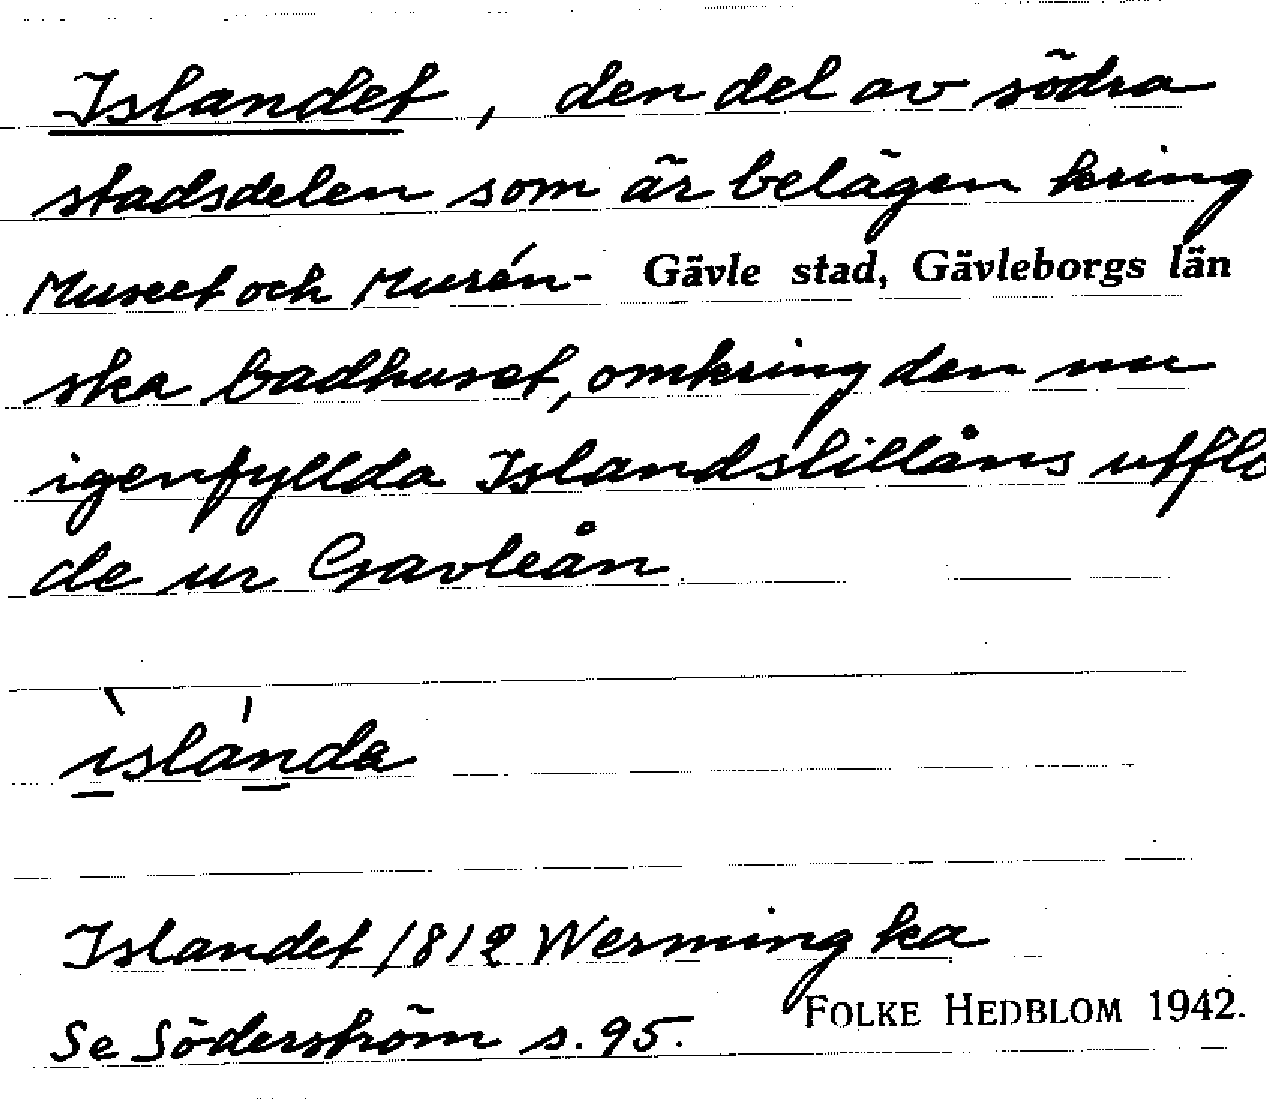 Islandet, den del av södra
stadsdelen som är belägen kring
Museet och Musén- Gävle stad, Gävleborgs län
ska badhuset, omkring den nu
igenfyllda Islandslillåns utflö
de ur Gavleån.
ìslánda
Islandet 1812 Werming ka
Se Söderström s. 95. FOLKE HEDBLOM 1942.